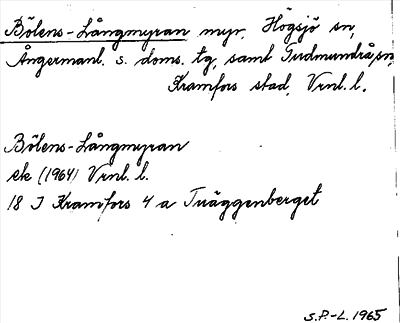 Bölens-Långmyran myr, Högsjö sn,
Ångermanl. s. doms. tg, samt Gudmundrå sn,
Kramfors stad, Vrnl. l.
Bölens-Långmyran
ek (1964) Vrnl. l.
18 I Kramfors 4 a Träggenberget
S.P.-L. 1965